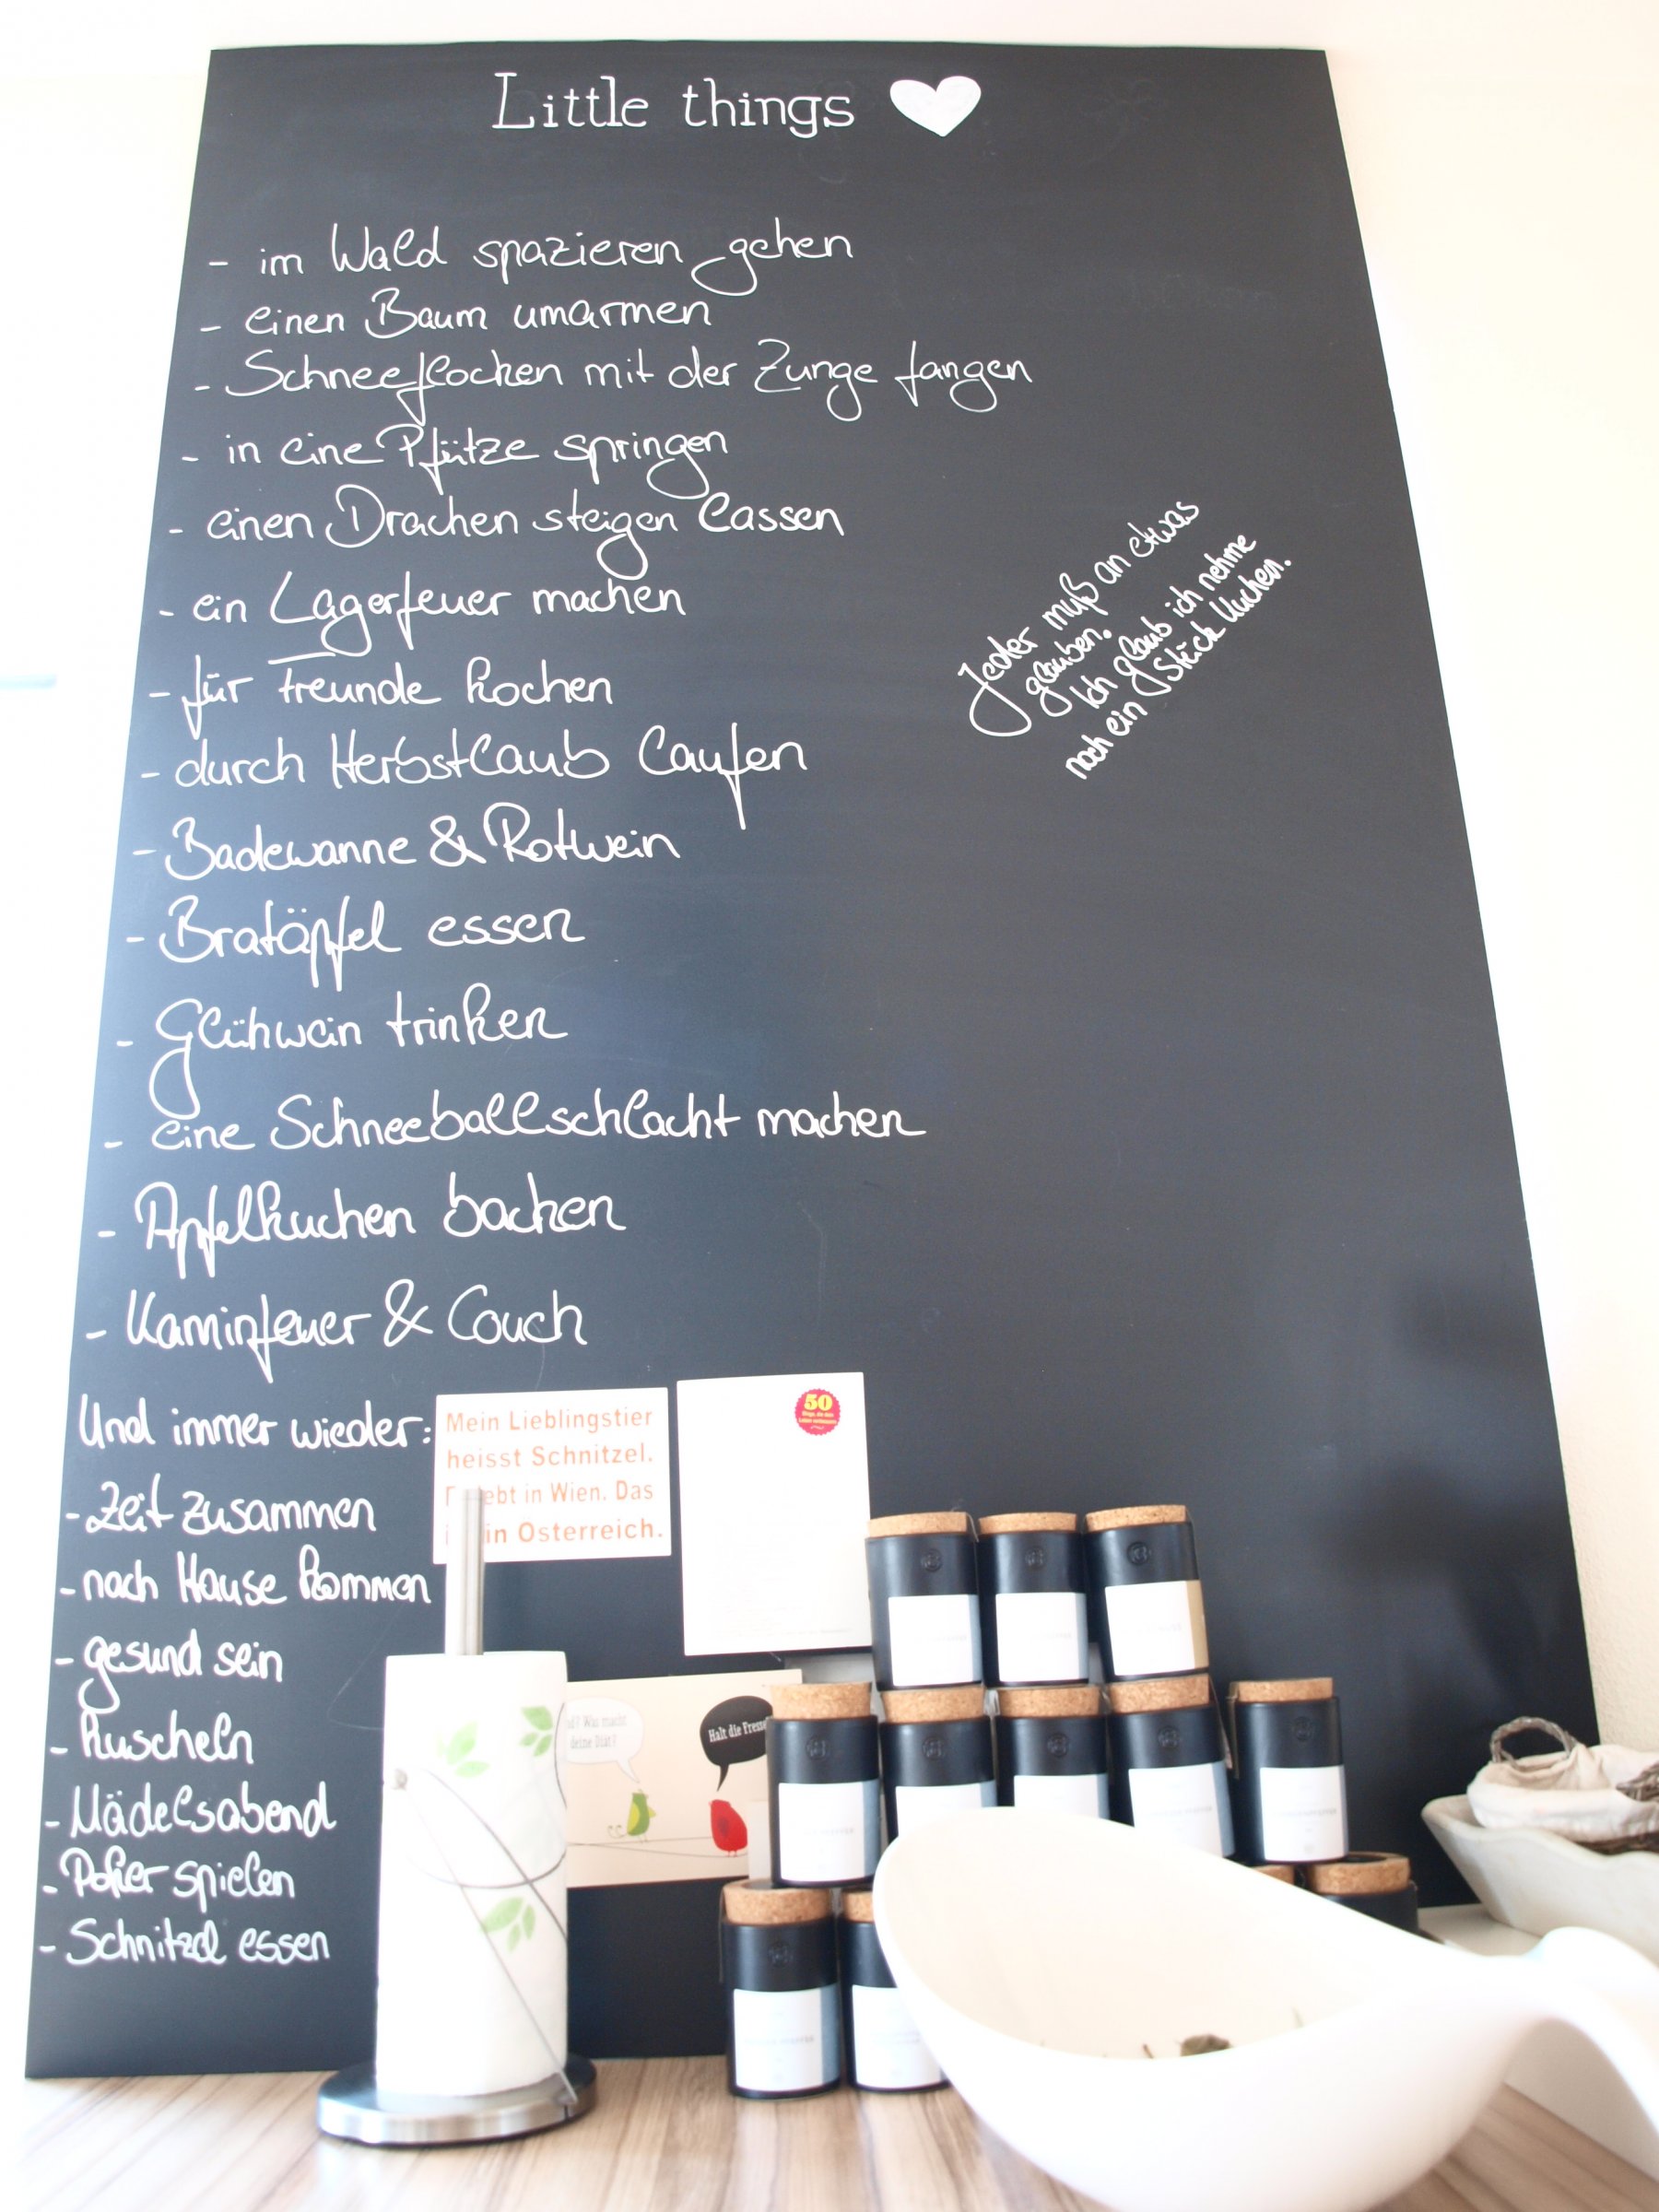 Little things
- im Wald spazieren gehen
- einen Baum umarmen
- Schneeflocken mit der Zunge fangen
- in eine Pfütze springen
- einen Drachen steigen lassen
- ein Lagerfeuer machen
- für Freunde kochen
- durch Herbstlaub laufen
- Badewanne & Rotwein
- Bratäpfel essen
- Glühwein trinken
- eine Schneeballschlacht machen
- Apfelkuchen backen
- Kaminfeuer & Couch
Und immer wieder:
- Zeit zusammen
- nach Hause kommen
- gesund sein
- Kuscheln
- Mädelsabend
- Poker spielen
- Schnitzel essen
Jeder muß an etwas
glauben.
Ich glaub ich nehme
noch ein Stück Kuchen.
Mein Lieblingstier
heisst Schnitzel.
in Wien. Das
in Osterreich.
50
Was macht
deine Diät?
Halt die Fresse